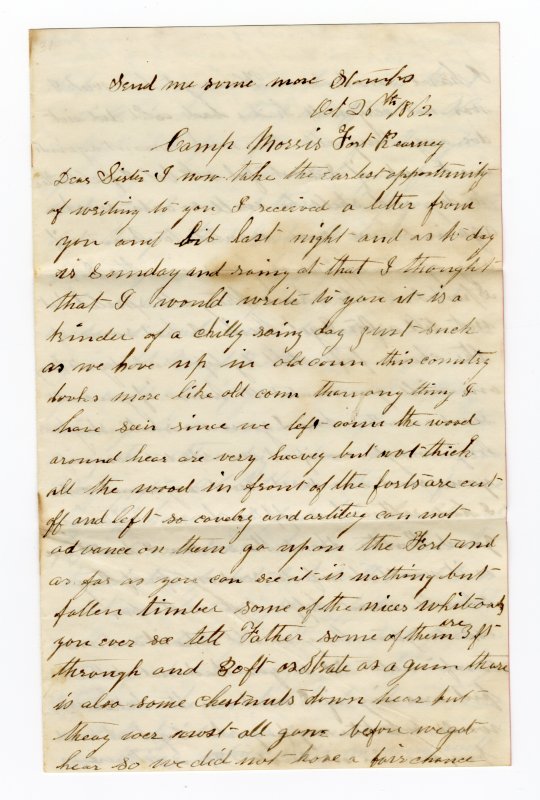 Send me some more Stamps
Oct 26th 1862.
Camp Morris Fort Kearney
Dear Sister I now take the earlest opportunity
of writing to you I received a letter from
you and Lib last night and as to day
is Sunday and rainy at that I thought
that I would write to you it is a
kinder of a chilly rainy day just such
as we have up in old conn this country
looks more like old conn than any thing I
have seen since we left conn the wood
around hear are very heavey but not thick
all the wood in front of the forts are cut
off and left so cavelry and artilery can not
advance on them go upon the Fort and
as far as you can see it is nothing but
fallen timber some of the nices white oaks
you ever see tell Father some of them are 3 ft
through and 80 ft as Strate as a gun thare
is also some chestnuts down hear but
theay wer most all gone before we got
hear so we did not have a fair chance